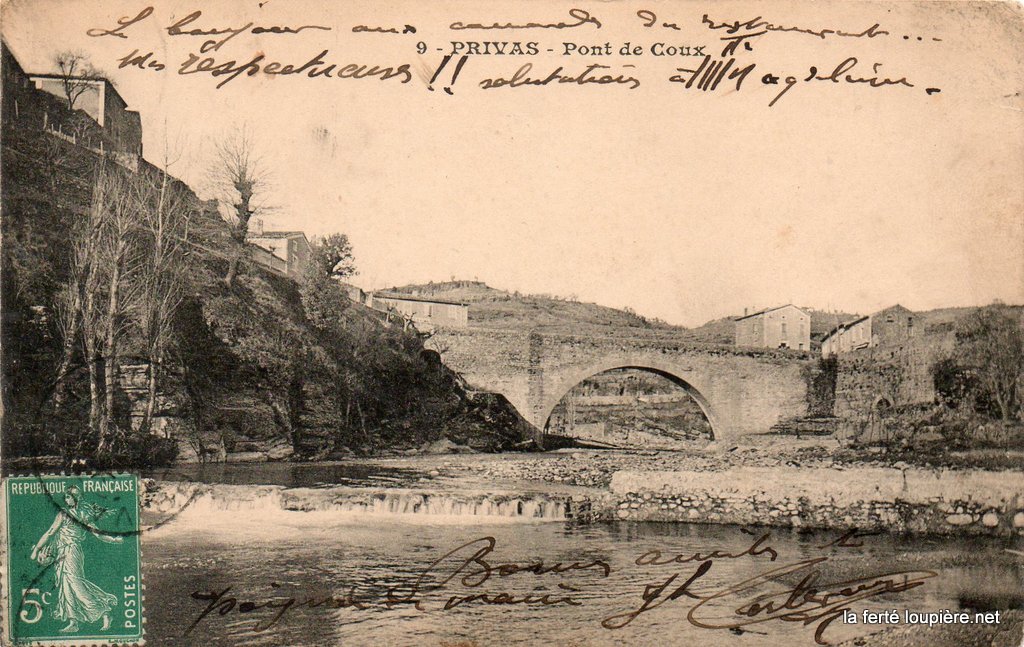 Le bonjour aux camarades du restaurant ...
9 - PRIVAS - Pont de Coux
Mes respectueuses !! salutations à
REPUBLIQUE FRANÇAISE
5c POSTES
Bonne amitié et
poignée de main
la ferté loupière.net